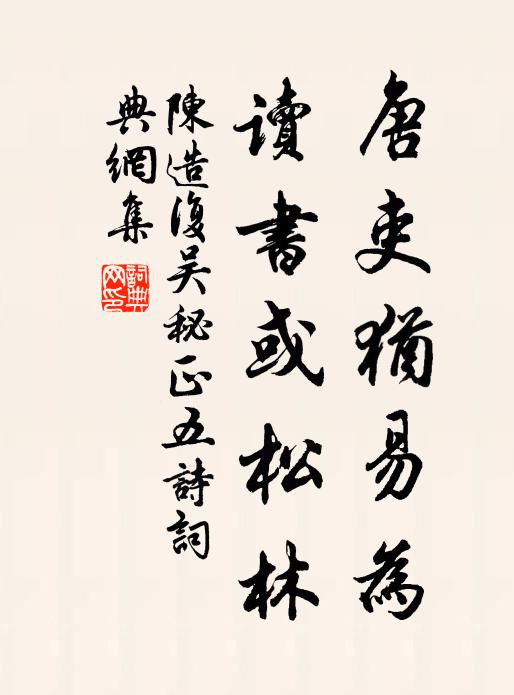 唐吏猶易為
讀書或松林
陳造復吳秘正五詩詞
典網集
詞典
网印